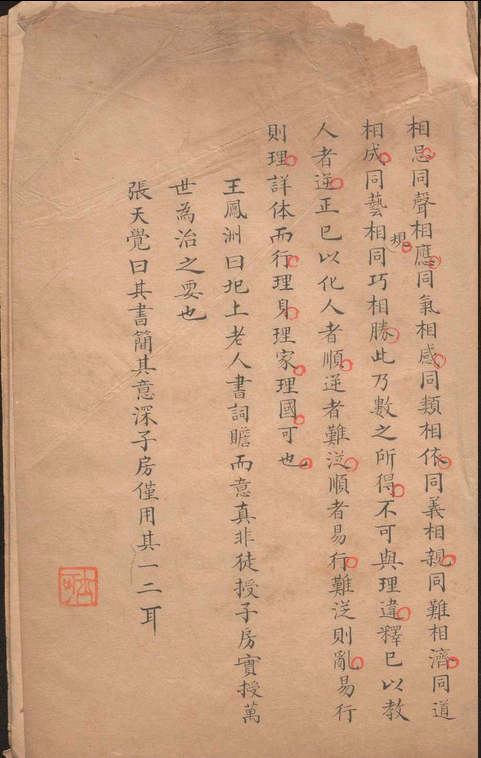 相忌同聲相應同氣相感同類相依同義相親同難相濟同道
相成同藝相規同巧相勝此乃數之所得不可與理違釋已以教
人者逆正已以化人者順逆者難從順者易行難從則亂易行
則理詳体而行理身理家理國可也
王鳳洲曰圯上老人書詞贍而意真非徒授子房實授萬
世為治之要也
張天覺曰其書簡其意深子房僅用其一二耳